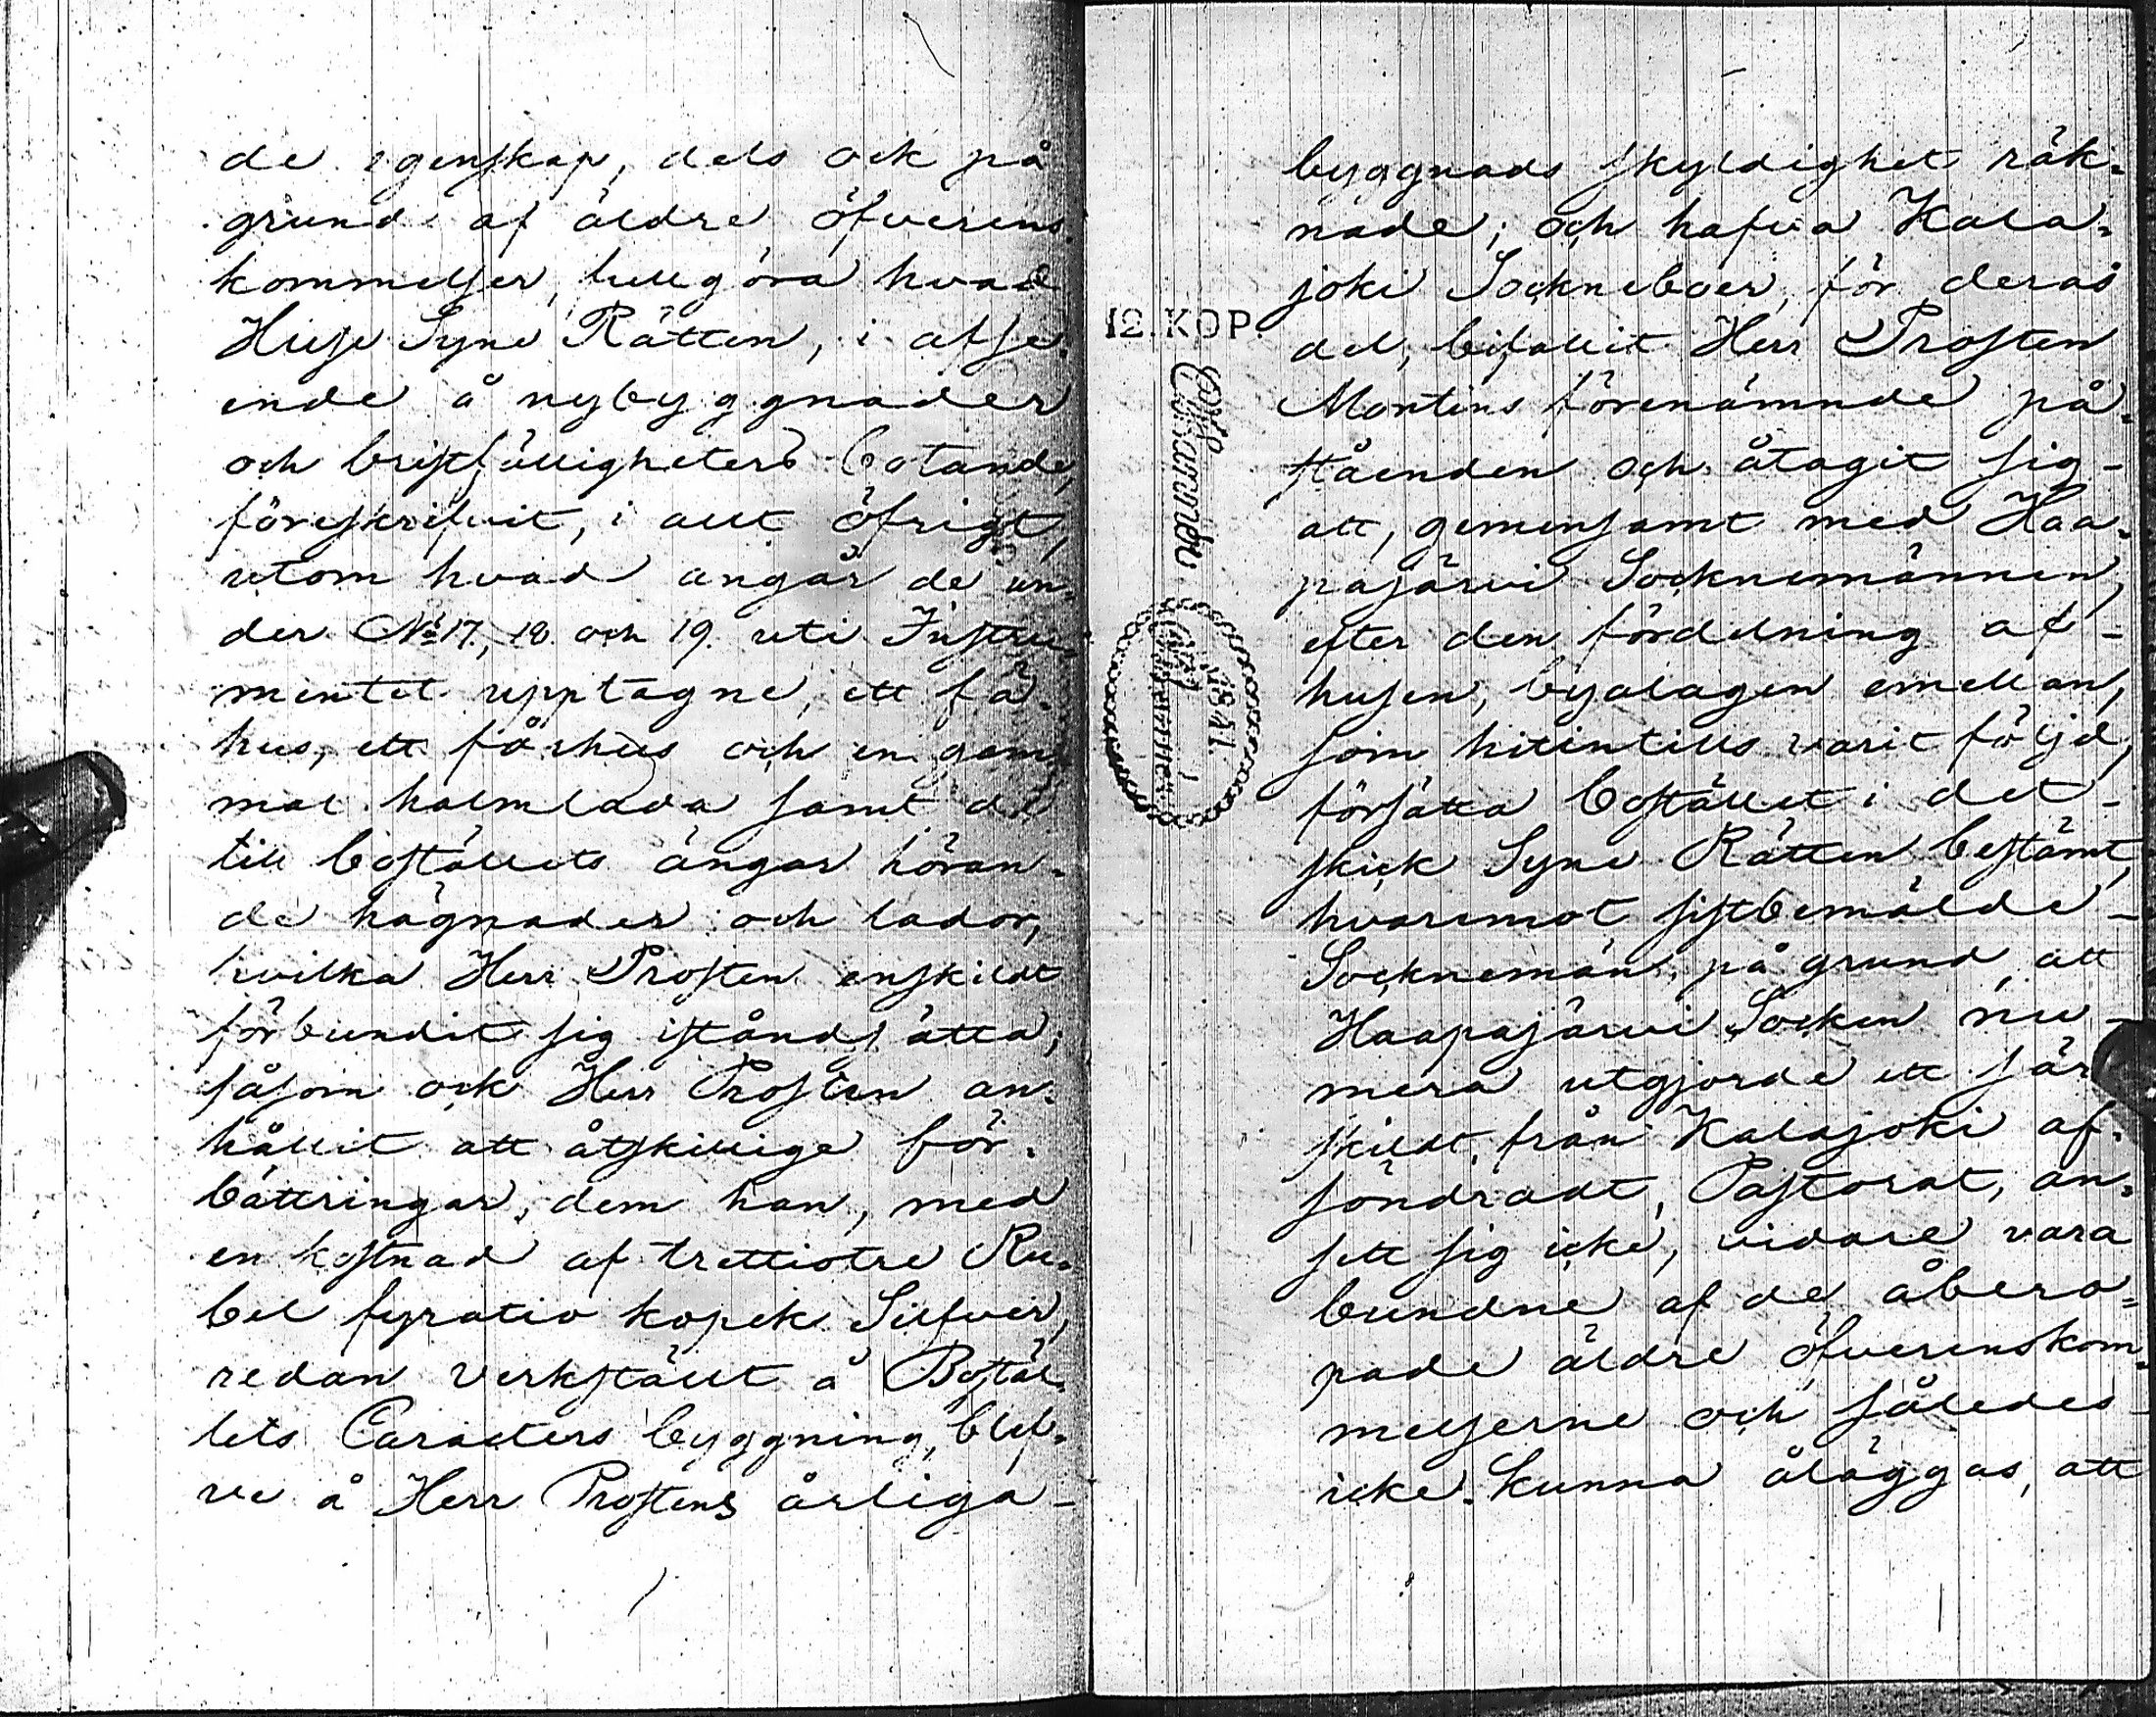 de egenskap, dels ock på
grund af äldre öfverens
kommelser, fullgöra hvad
Huse Syne Rätten, i afse-
ende å nybyggnader
och bristfälligheters botande,
föreskrifvit, i allt öfrigt,
utom hvad angår de un-
der No 17, 18 och 19 uti Instru-
mentet upptagne, ett fä-
hus, ett fårhus och en gam-
mal halmlada samt de
till boställets ängar höran-
de hägnader och lador,
hvilka Herr Prosten enskildt
förbundit sig iståndsätta;
såsom ock Herr Prosten an-
hållit att åtskillige för-
bättringar, dem han, med
en kostnad af trettiotre Ru-
bel fyratio kopek Silfver,
redan verkstält å Bostäl-
lets Caracters byggning, blef-
ve å Herr Prostens årliga-
12. KOP.
1841.
byggnads skyldighet räk-
nade; och hafva Kala-
joki Sockneboer, för deras
del, bifallit Herr Prosten
Montins förenämnde på-
ståenden och åtagit sig-
att, gemensamt med Haa-
pajärvi Socknemännen,
efter den fördelning af-
husen, byalagen emellan,
som hitintills varit följd,
försätta bostället i det-
skick Syne Rätten bestämt,
hvaremot sistbemälde-
Socknemän, på grund att
Haapajärvi Socken nu-
mera utgjorde ett sär-
skildt, från Kalajoki af-
söndradt, Pastorat, an-
sett sig icke, vidare vara
bundne af de åbero-
pade äldre öfverenskom-
melserne och således-
icke kunna åläggas, att